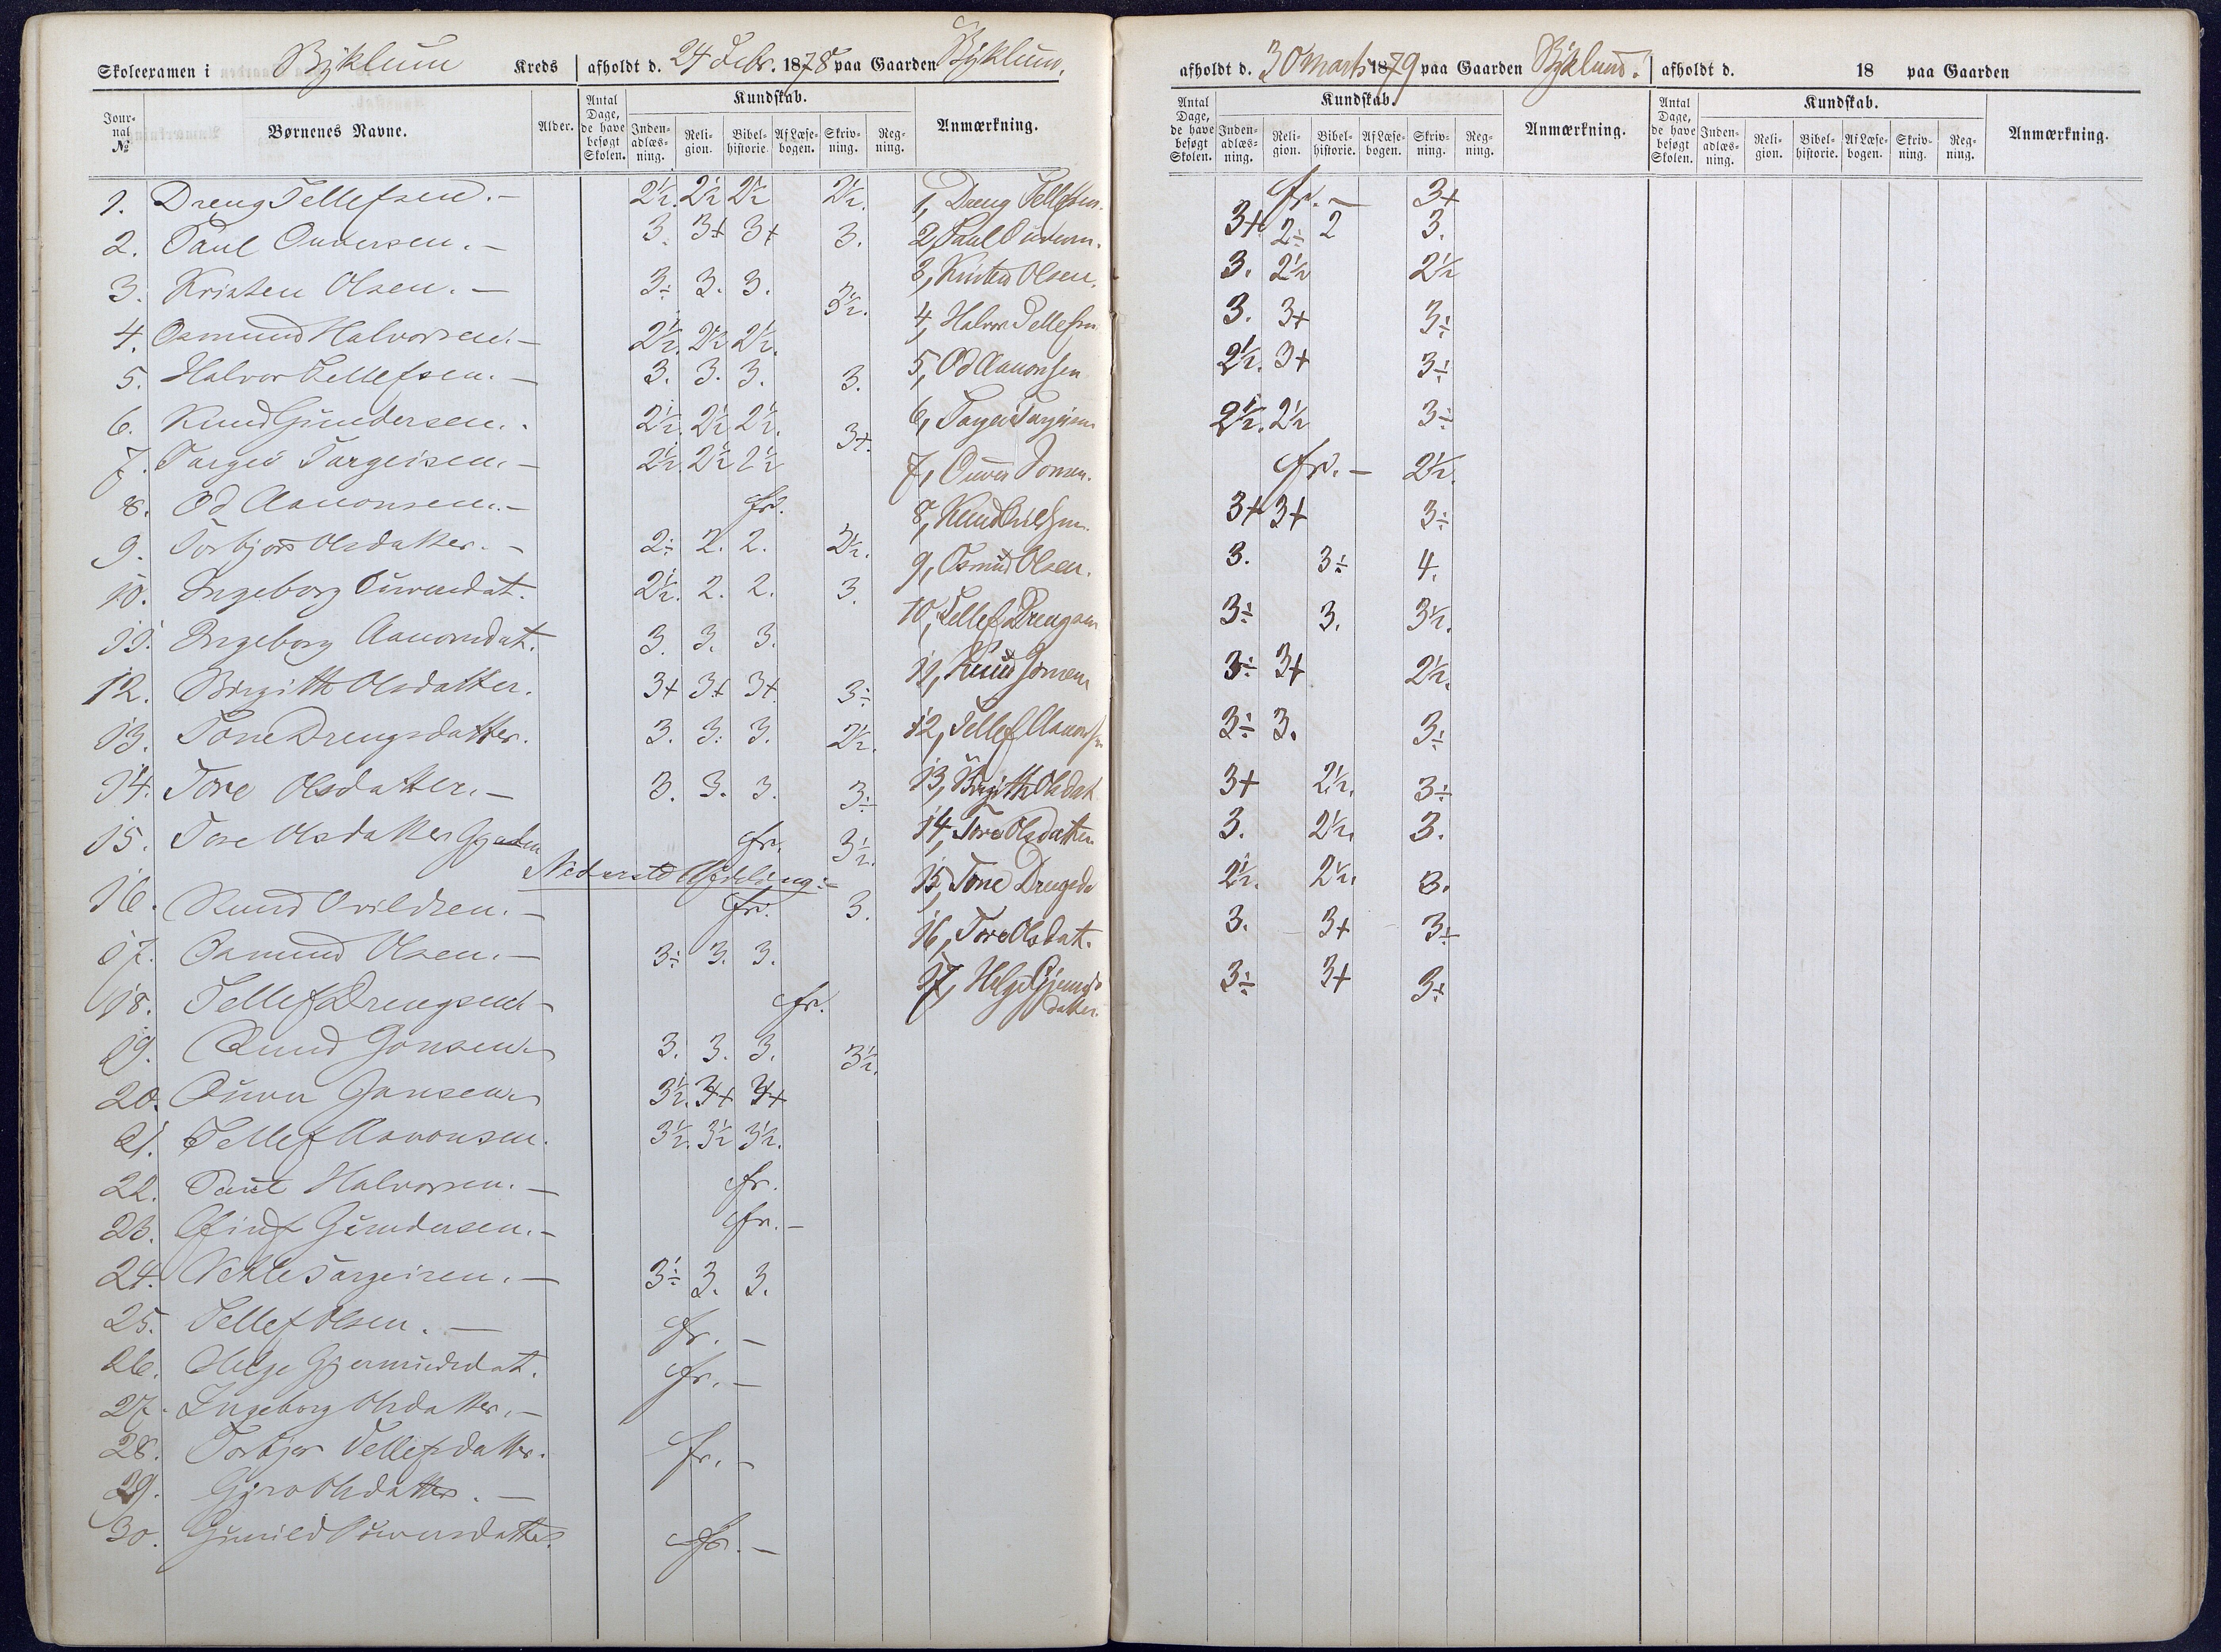 Skoleexamen i Byklum Kreds afholdt d. 24 Febr. 1878 paa Gaarden Byklum.
Jour-nal № Børnenes Navne. Alder. Antal Dage, de have besøgt Skolen. Kundskab. Inden-adlæs-ning. Reli-gion. Bibel-historie. Af Læse-bogen. Skriv-ning. Reg-ning. Anmærkning.
1. Dreng Tellefsen. – 2½. 2½ 2½ 2½. 1, Dreng Tellefsen.
2. Paul Ouversen. – 3. 3+ 3+ 3. 2, Paul
3. Kristen Olsen. – 3÷ 3. 3. 3½. 3, Kristen Olsen.
4. Osmund Halvorsen. – 2½. 2½ 2½. 4, Halvor Tellefsen
5. Halvor Tellefsen. – 3. 3. 3. 3. 5, Od Aanonsen
6. Knud Gundersen. 2½. 2½ 2½. 3+. 6, Targei Targeisen
7. Targei Targeisen. – 2½ 2½ 2½ 7, Ouver Jonsen.
8. Od Aanonsen. – fr. 8, Knud
9. Torbjør Olsdatter. – 2÷ 2. 2. 2½. 9, Osmund Olsen.
10. Ingeborg Ouversdat. 2½. 2. 2. 3. 10, Tellef Drengsen
11. Ingeborg Aanonsdat. 3. 3. 3. 11, Knud Jonsen
12. Birgith Olsdatter. 3+ 3+ 3+ 3÷ 12, Tellef Aanonsen
13. Tone Drengsdatter. 3. 3. 3. 2½. 13, Birgith Olsdat
14. Tore Olsdatter. – 3. 3. 3. 3÷ 14, Tore Olsdatter
15. Tore Olsdatter fr. 3½. 15, Tone Drengsda
Nederste Afdeling:
16. Knud – fr. 3. 16, Tore Olsdat.
17. Osmund Olsen. – 3÷ 3. 3. 17, Helge Gjermunds datter.
18. Tellef Drengsen – fr.
19. Knud Jonsen. 3. 3. 3. 3½.
20. Ouver Jonsen. 3½. 3+ 3+
21. Tellef Aanonsen. 3½. 3½ 3½.
22. Paul Halvorsen. – fr.
23. Gundersen. – fr. –
24. Targeisen. – 3÷ 3. 3.
25. Tellef Olsen. – fr. –
26. Helge Gjermundsdat. fr. –
27. Ingeborg Olsdatter. –
28. Torbjør Tellefsdatter. fr. –
29. Gyro Olsdatter. –
30. Gunild Ouversdatter. fr. –
afholdt d. 30 Marts 1879 paa Gaarden Byklum. afholdt d. 18 paa Gaarden
Antal Dage, de have besøgt Skolen. Kundskab. Inden-adlæs-ning. Reli-gion. Bibel-historie. Af Læse-bogen. Skriv-ning. Reg-ning. Anmærkning. Antal Dage, de have besøgt Skolen. Kundskab. Inden-adlæs-ning. Reli-gion. Bibel-historie. Af Læse-bogen. Skriv-ning. Reg-ning. Anmærkning.
fr. – 3+
3+ 2÷ 2 3.
3. 2½ 2½
3. 3+ 3÷
2½. 3+ 3÷
2½. 2½ 3÷
fr. – 2½.
3+ 3+ 3÷
3. 3÷ 4.
3÷ 3. 3½.
3÷ 3+ 2½.
3÷ 3. 3÷
3+ 2½. 3÷
3. 2½. 3.
2½. 2½. 3.
3. 3+ 3÷
3÷ 3+ 3÷